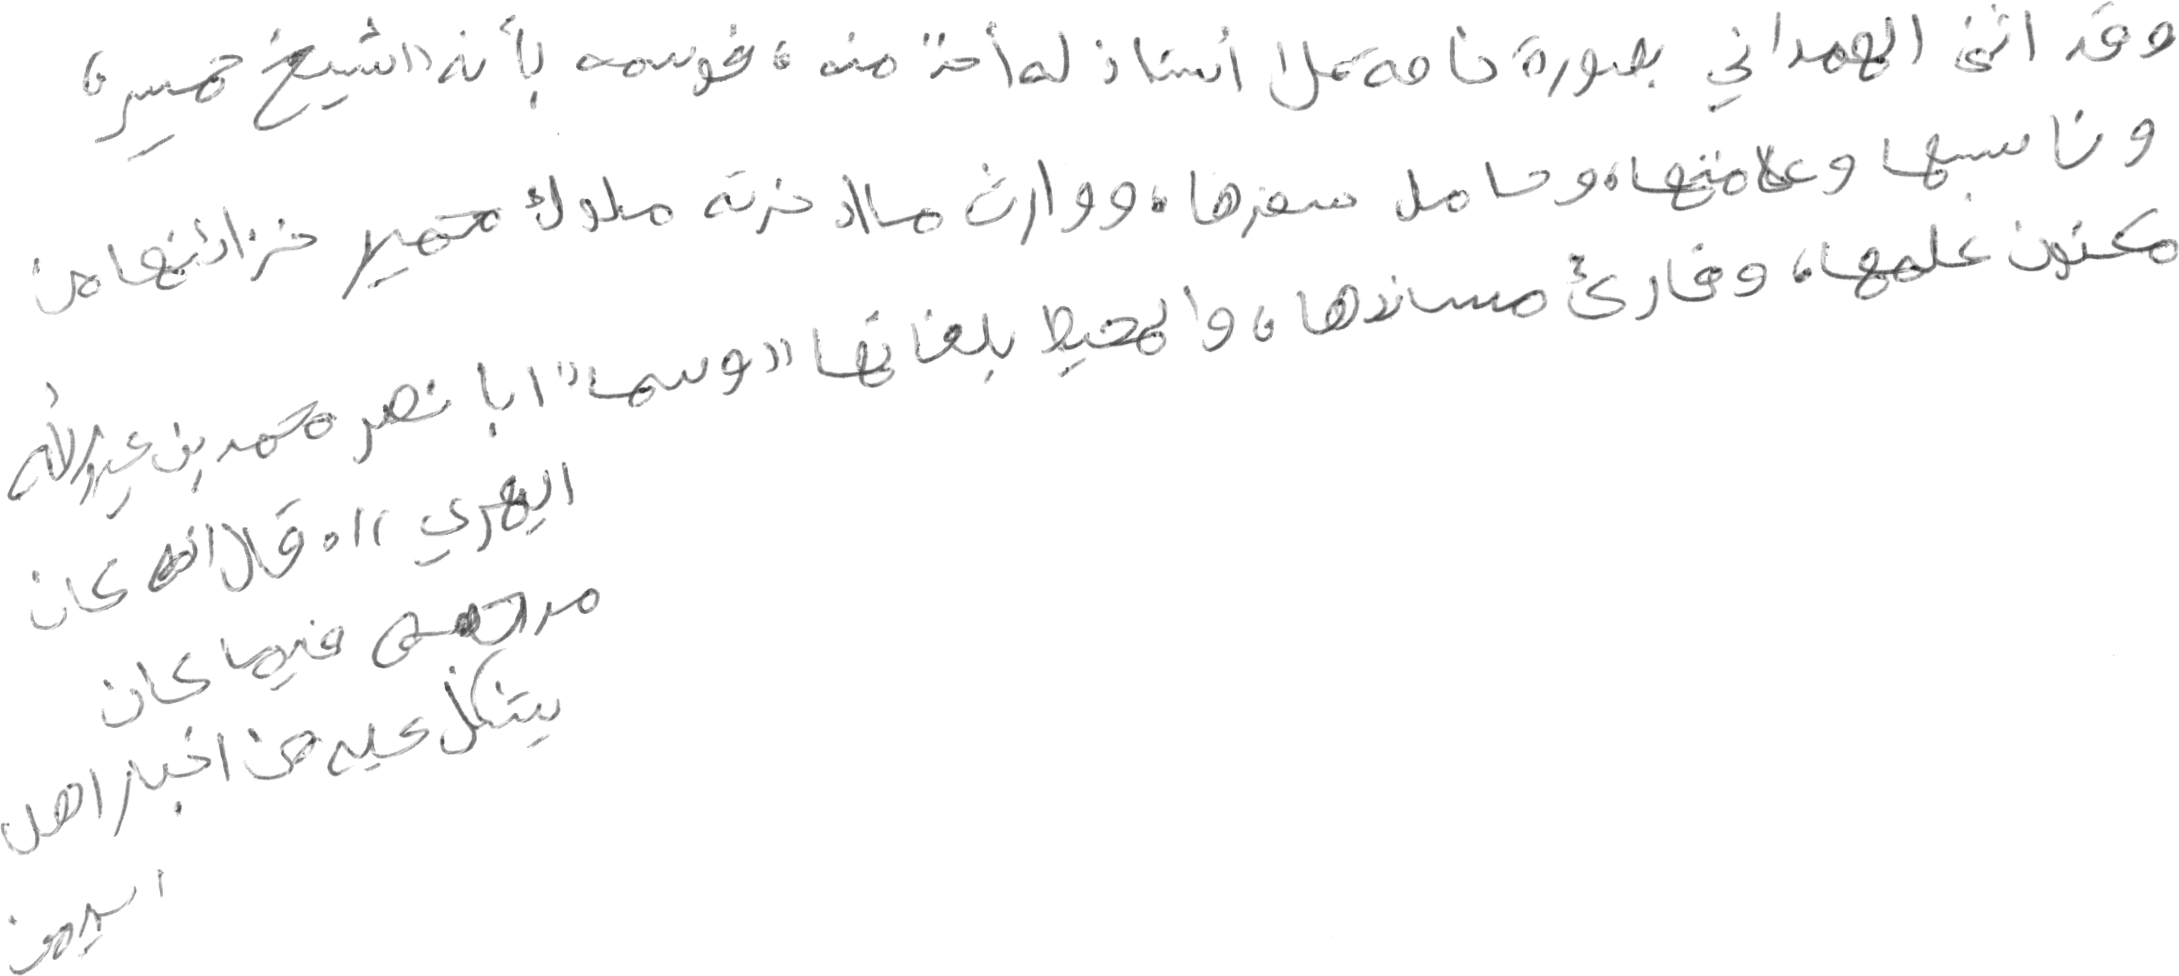 وقد اثنى الهمداني بصورة خاصة على أستاذ له أخذ منه، فوسمه بأنه "شيخ حمير،
وناسبها وعلامتها، وحامل سفرها، ووارث ما ادخرته ملوك حمير خزائنها من
مكنون علمها، وقارئ مساندها، والمحيط بلغاتها" وسماه "ابا نصر محمد بن عبدالله
اليهري"، وقال انه كان
مرجعه فيما كان
يتكل عليه من اخبار اهل
اليمن